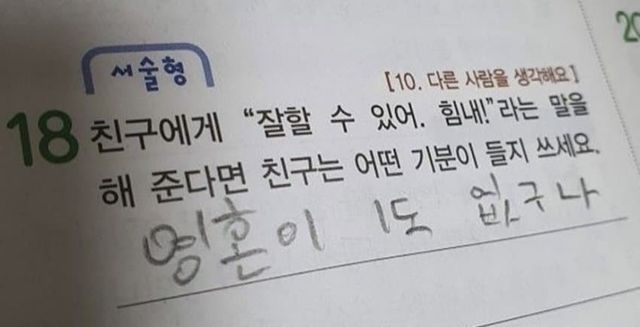 서술형
[10. 다른 사람을 생각해요]
18 친구에게 “잘할 수 있어. 힘내!”라는 말을
해 준다면 친구는 어떤 기분이 들지 쓰세요.
영혼이 1도 없구나
20